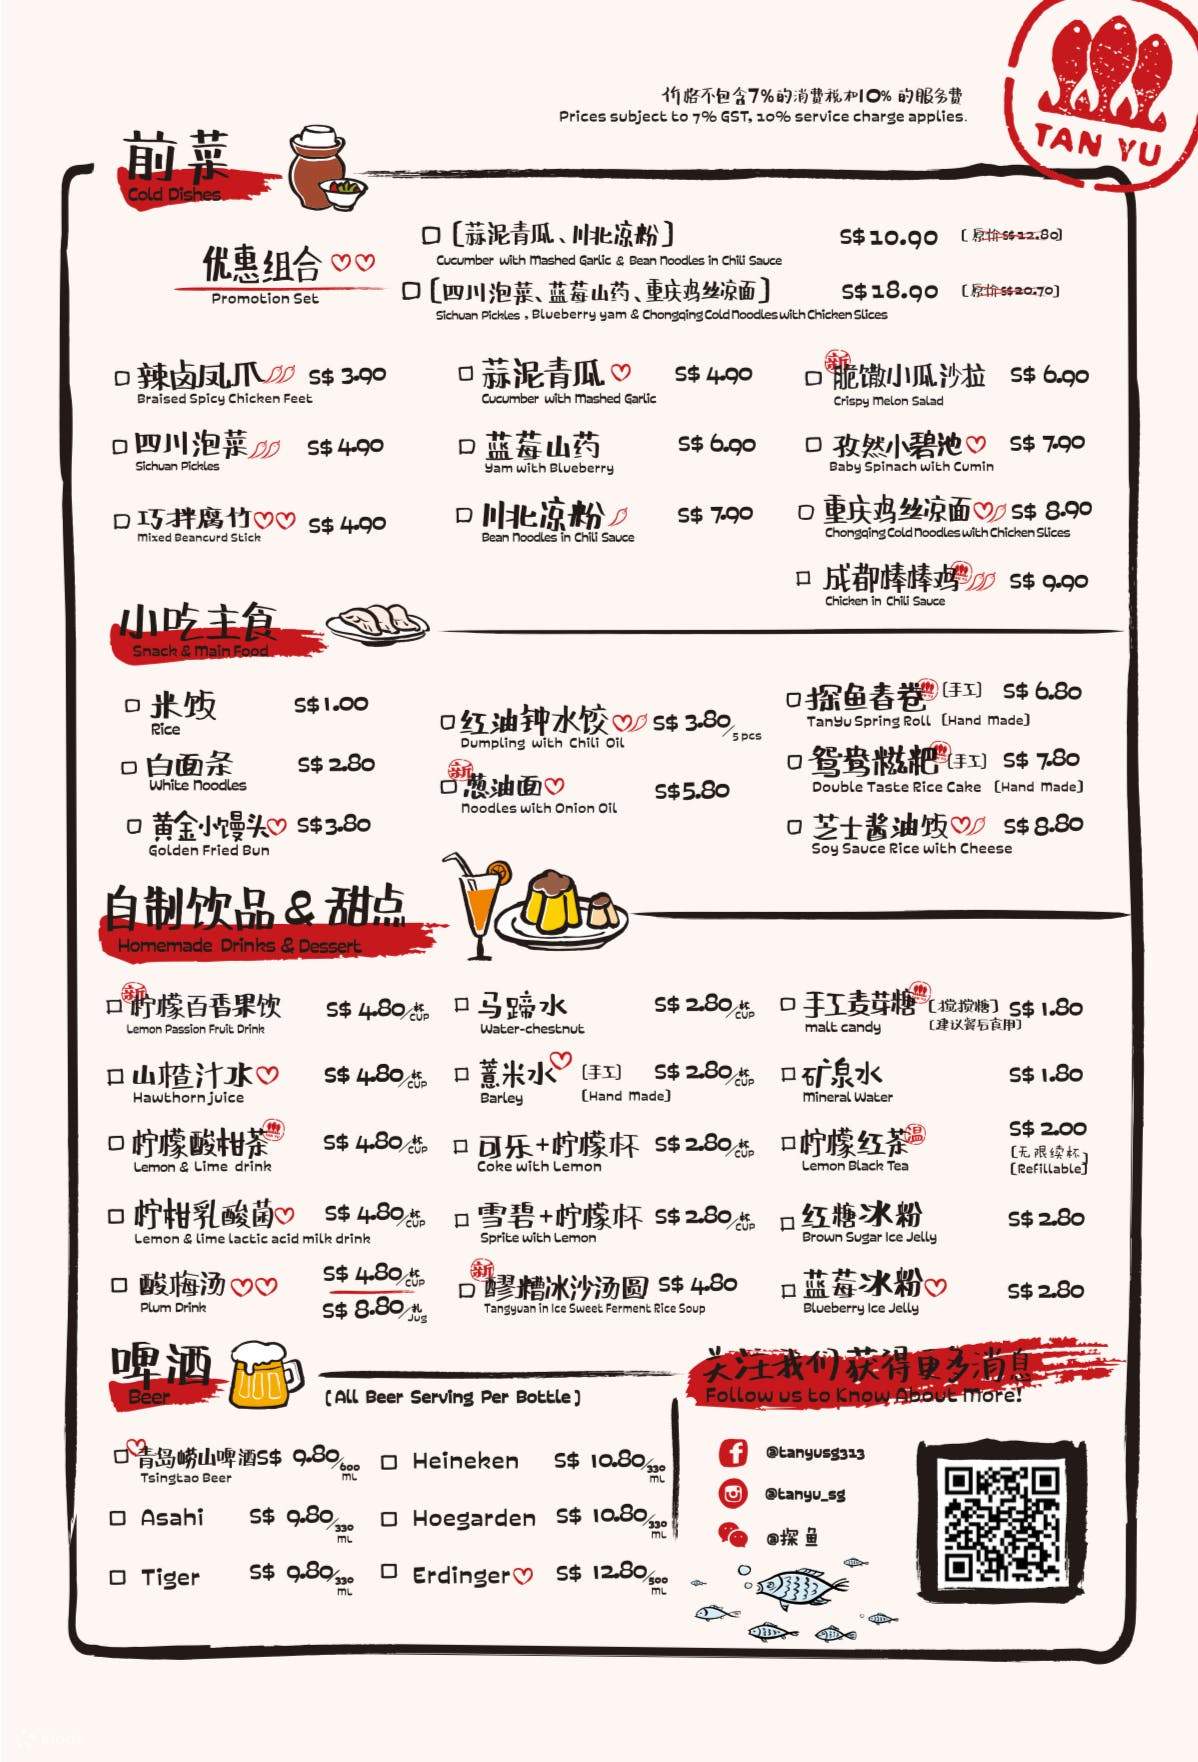 价格不包含7%的消费税和10% 的服务费
Prices subject to 7% GST, 10% service charge applies.
TAN YU
前菜
Cold Dishes
优惠组合
Promotion Set
[蒜泥青瓜、川北凉粉]
S$ 10.90 [原价S$12.80]
Cucumber with Mashed Garlic & Bean Noodles in Chili Sauce
[四川泡菜、蓝莓山药、重庆鸡丝凉面]
S$ 18.90 [原价S$20.70]
Sichuan Pickles , Blueberry yam & Chongqing Cold Noodles with Chicken Slices
辣卤凤爪 S$ 3.90
Braised Spicy Chicken Feet
蒜泥青瓜 S$ 4.90
Cucumber with Mashed Garlic
新
脆馓小瓜沙拉 S$ 6.90
Crispy Melon Salad
四川泡菜 S$ 4.90
Sichuan Pickles
蓝莓山药 S$ 6.90
Yam with Blueberry
孜然小碧池 S$ 7.90
Baby Spinach with Cumin
巧拌腐竹 S$ 4.90
Mixed Beancurd Stick
川北凉粉 S$ 7.90
Bean Noodles in Chili Sauce
重庆鸡丝凉面 S$ 8.90
Chongqing Cold Noodles with Chicken Slices
成都棒棒鸡 S$ 9.90
Chicken in Chili Sauce
小吃主食
Snack & Main Food
米饭 S$ 1.00
Rice
白面条 S$ 2.80
White Noodles
黄金小馒头 S$ 3.80
Golden Fried Bun
红油钟水饺 S$ 3.80/5 pcs
Dumpling with Chili Oil
新
葱油面 S$ 5.80
Noodles with Onion Oil
探鱼春卷 [手工] S$ 6.80
TanYu Spring Roll [Hand Made]
鸳鸯糍粑 [手工] S$ 7.80
Double Taste Rice Cake [Hand Made]
芝士酱油饭 S$ 8.80
Soy Sauce Rice with Cheese
自制饮品 & 甜点
Homemade Drinks & Dessert
新
柠檬百香果饮 S$ 4.80/杯 CUP
Lemon Passion Fruit Drink
马蹄水 S$ 2.80/杯 CUP
Water-chestnut
手工麦芽糖 [搅搅糖] S$ 1.80
malt candy [建议餐后食用]
山楂汁水 S$ 4.80/杯 CUP
Hawthorn juice
薏米水 [手工] S$ 2.80/杯 CUP
Barley [Hand Made]
矿泉水 S$ 1.80
Mineral Water
柠檬酸柑茶 S$ 4.80/杯 CUP
Lemon & Lime drink
可乐+柠檬杯 S$ 2.80/杯 CUP
Coke with Lemon
柠檬红茶 温 S$ 2.00
Lemon Black Tea
[无限续杯]
[Refillable]
柠柑乳酸菌 S$ 4.80/杯 CUP
Lemon & lime lactic acid milk drink
雪碧+柠檬杯 S$ 2.80/杯 CUP
Sprite with Lemon
红糖冰粉 S$ 2.80
Brown Sugar Ice Jelly
酸梅汤 S$ 4.80/杯 CUP
Plum Drink S$ 8.80/扎 Jug
新
醪糟冰沙汤圆 S$ 4.80
Tangyuan in Ice Sweet Ferment Rice Soup
蓝莓冰粉 S$ 2.80
Blueberry Ice Jelly
啤酒
Beer
[All Beer Serving Per Bottle]
青岛崂山啤酒 S$ 9.80/600 mL
Tsingtao Beer
Heineken S$ 10.80/330 mL
Asahi S$ 9.80/330 mL
Hoegarden S$ 10.80/330 mL
Tiger S$ 9.80/330 mL
Erdinger S$ 12.80/500 mL
关注我们获得更多消息
Follow us to Know About More!
@tanyusg313
@tanyu_sg
@探鱼